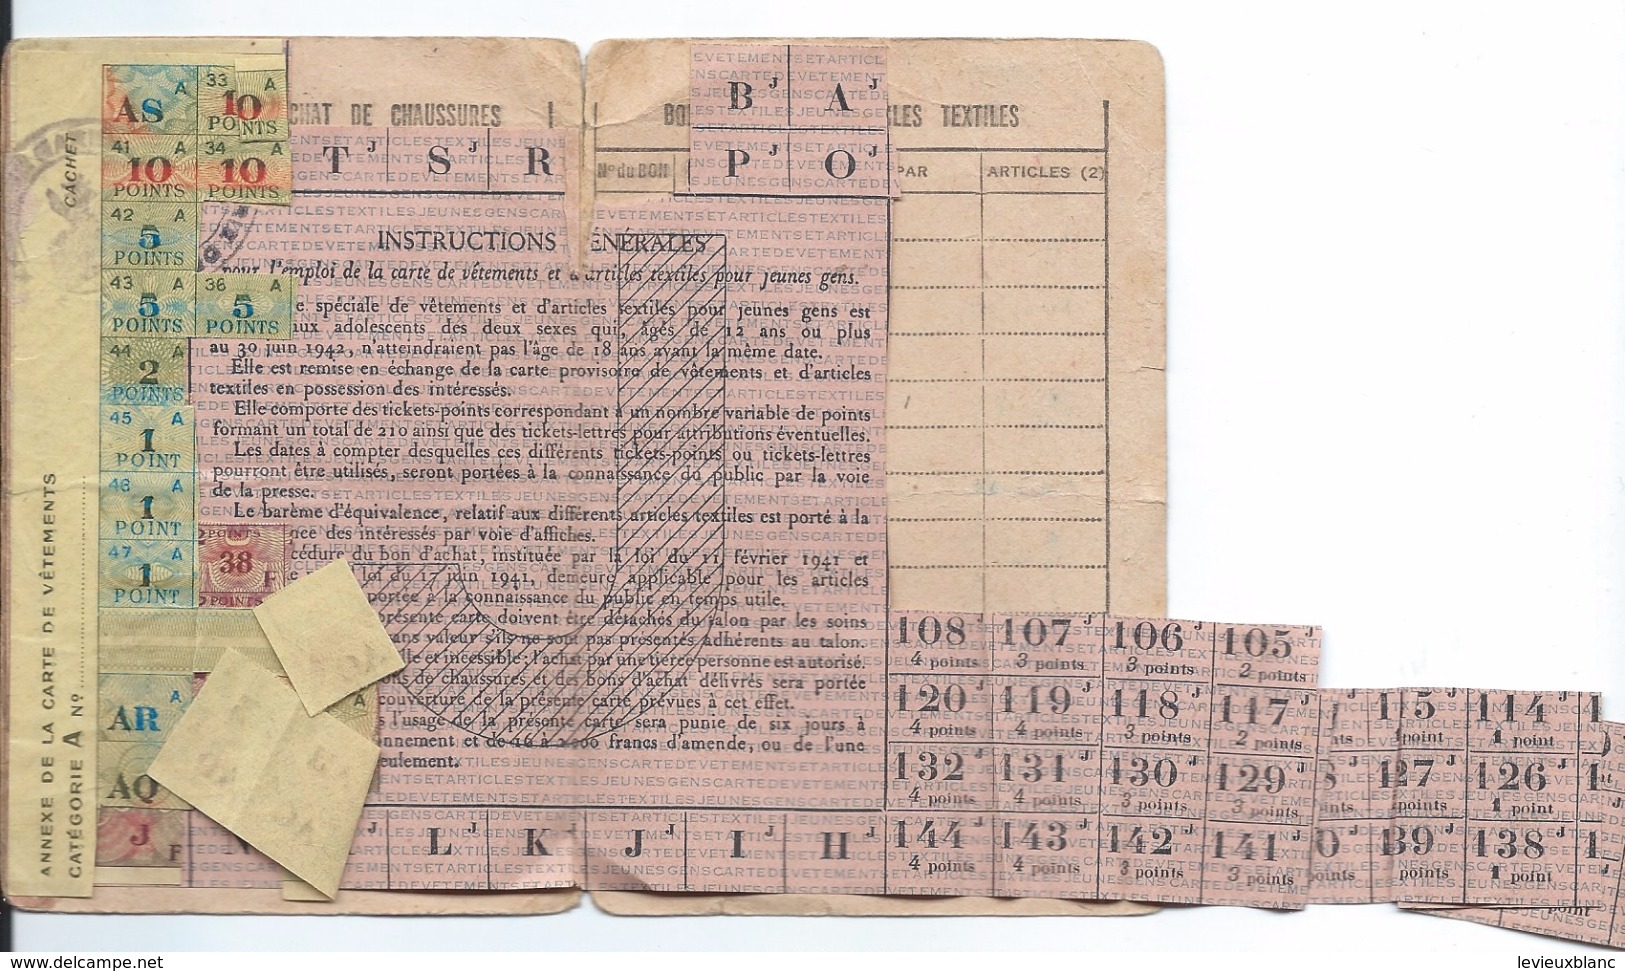 ANNEXE DE LA CARTE DE VÊTEMENTS
CATÉGORIE A No
CACHET
AS A
33 A
10
POINTS
41 A
10
POINTS
34 A
10
POINTS
42 A
5
POINTS
43 A
5
POINTS
36 A
5
POINTS
44 A
2
POINTS
45 A
1
POINT
46 A
1
POINT
47 A
1
POINT
2 POINTS
38 F
2 POINTS
AR A
AQ
J F
CHAT DE CHAUSSURES
TEXTILES
No du BON
PAR
ARTICLES (2)
B J A J
T J S J R
P J O J
INSTRUCTIONS GÉNÉRALES
pour l'emploi de la carte de vêtements et d'articles textiles pour jeunes gens.
spéciale de vêtements et d'articles textiles pour jeunes gens est
aux adolescents des deux sexes qui, âgés de 12 ans ou plus
au 30 juin 1942, n'atteindraient pas l'âge de 18 ans avant la même date.
Elle est remise en échange de la carte provisoire de vêtements et d'articles
textiles en possession des intéressés.
Elle comporte des tickets-points correspondant à un nombre variable de points
formant un total de 210 ainsi que des tickets-lettres pour attributions éventuelles.
Les dates à compter desquelles ces différents tickets-points ou tickets-lettres
pourront être utilisés, seront portées à la connaissance du public par la voie
de la presse.
Le barème d'équivalence, relatif aux différents articles textiles est porté à la
ance des intéressés par voie d'affiches.
cédure du bon d'achat, instituée par la loi du 11 février 1941 et
loi du 17 juin 1941, demeure applicable pour les articles
portée à la connaissance du public en temps utile.
présente carte doivent être détachés du talon par les soins
ans valeur s'ils ne sont pas présentés adhérents au talon.
lle et incessible ; l'achat par une tierce personne est autorisé.
ons de chaussures et des bons d'achat délivrés sera portée
couverture de la présente carte prévues à cet effet.
s l'usage de la présente carte sera punie de six jours à
nnement et de 16 à 2.000 francs d'amende, ou de l'une
eulement.
108 J 107 J 106 J 105 J
4 points 3 points 3 points 2 points
120 J 119 J 118 J 117 J 115 J 114 J
4 points 4 points 3 points 2 points 1 point 1 point
132 J 131 J 130 J 129 J 127 J 126 J
4 points 4 points 3 points 3 points points 1 point
144 J 143 J 142 J 141 J 139 J 138 J
4 points 4 points 3 points 3 points points 1 point
L J K J J J I J H J
point
www.delcampe.net
levieuxblanc